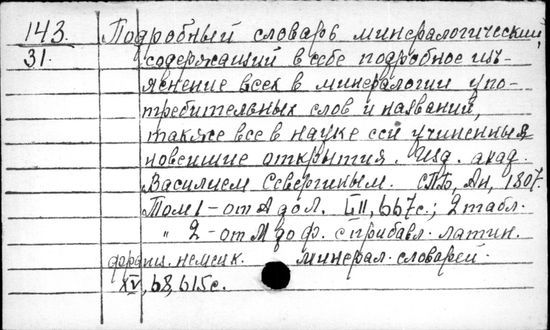 143. Подробный словарь минералогический,
31. содержащий в себе подробное изъ-
яснение всех в минералогии упо-
требительных слов и названий,
также все в науке сей учиненныя
новейшие открытия. Изд. акад.
Василием Севергиным. СПБ, Ан, 1807.
Том 1 - от А до Л. LII, 667 с.; 2 табл.
" 2 - от М до Ф. с прибавл. латин.
франц. немецк. минерал. словарей.
XV, 68, 615 с.